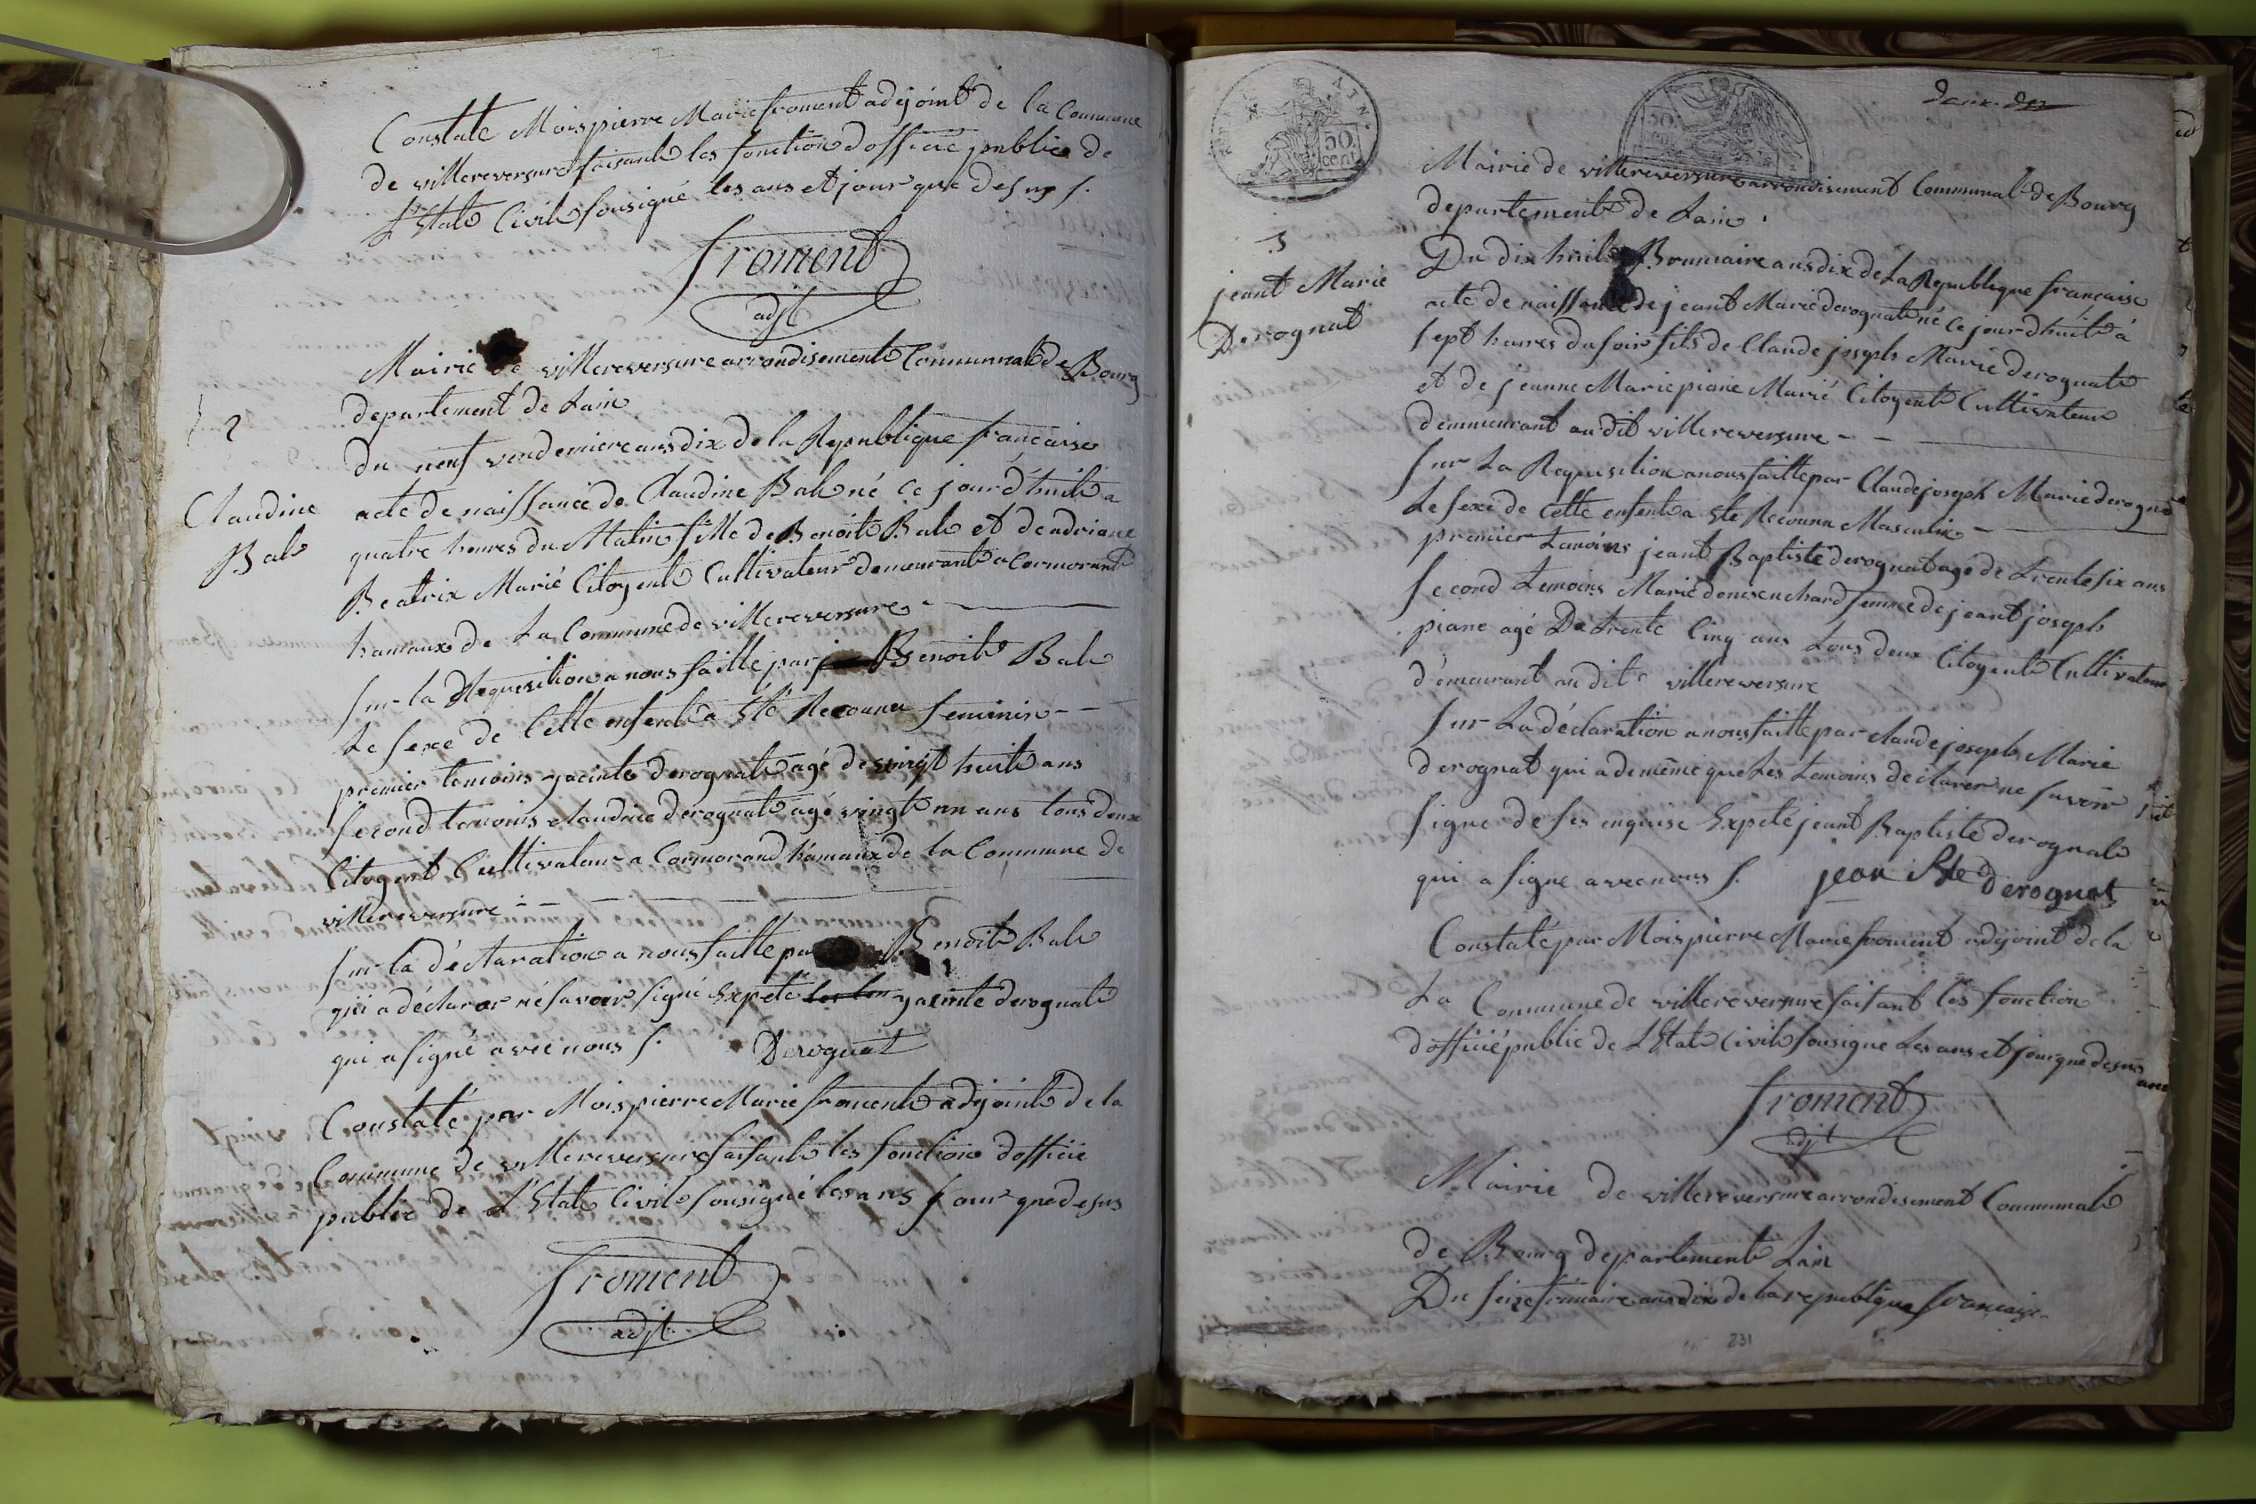 Constate Mois pierre Marie froment adyoint de la Commune
de villereversure faisante les fonction dofficié public de
L'Etate Civile sousigné les ans et jour que desus /.
froment
adjt
Mairie de villereversure arrondisemente Communale de Bourg
departement de Lain
2
Du neuf vendemiere ans dix de la Republique francaise
Claudine
Bale
acte de naissance de Claudine Bale né ce jourd'huite a
quatre heures du Matin fille de Benoite Bale et dendriane
Beatrix Marié Citoyent Cultivateur demeurante a Cormorant
hamaux de La Commune de villereversure
sur la Requisition a nous faitte par Benoite Bale
Le sexe de Cette enfente a Eté Reconnu feminin
premier temoins yacinte derognate agé de vingt huite ans
second temoins claudine derognate agé vingt un ans tous deux
Citoyent Cultivateur a Cormorand hamaux de la Commune de
villereversure
sur la déclaration a nous faitte par Benoite Bale
qui a déclarer né savoir signé Expeté yacinte derognate
qui a signé avec nous /. Derognat
Constaté par Mois pierre Marie froment adyointe de la
Commune de villereversure faisante les fonction dofficié
public de L'Etate Civile sousigné les ans jour que desus
froment
adjt
AIN
50
cent
50
Mairie de villereversure arrondisement Communal de Bourg
departemente de Lain
3
jeant Marie
Derognat
Du dix huite Brumaire ans dix de La Republique francaise
acte de naissance de jeant Marie derognate né ce jourdhuite à
sept heures du soir fils de Claude joseph Marie derognate
et de jeanne Marie piane Marié Citoyente Cultivateur
demmeurant au dit villereversure
sur La Requisition a nous faitte par Claude joseph Marie derogna
Le sexe de Cette enfente a Ete Reconnu Masculin
premier temoins jeant Baptiste derognat agé de trente six ans
second temoins Marie femme de jeant joseph
piane agé De trente Cinq ans tous deux Citoyente Cultivateur
d'émeurant au dite villereversure
sur La déclaration a nous faitte par claude joseph Marie
derognat qui a demême que Les temoins declarer ne savoir
signe de ses enquise Expeté jeant Baptiste derognate
qui a signe avec nous /. jean Bte derognat
Constaté par Mois pierre Marie froment adyoint de la
La Commune de villereversure faisant les fonction
dofficié public de L'Etate Civile sousigne Les ans et jour que desus
froment
adjt
Mairie de villereversure arrondisement Communale
de Bourg departemente Lain
Du seize frimaire ans dix de la republique francaise
231